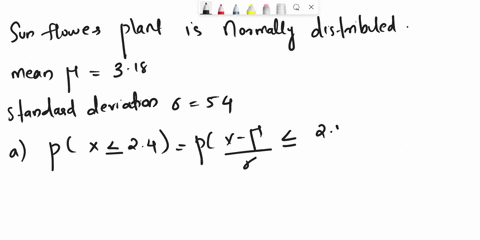 Sun flower plant is Normally distributed.
mean μ = 3.18
standard deviation σ = 54
a) p( x ≤ 2.4) = p( x-μ/σ ≤ 2.